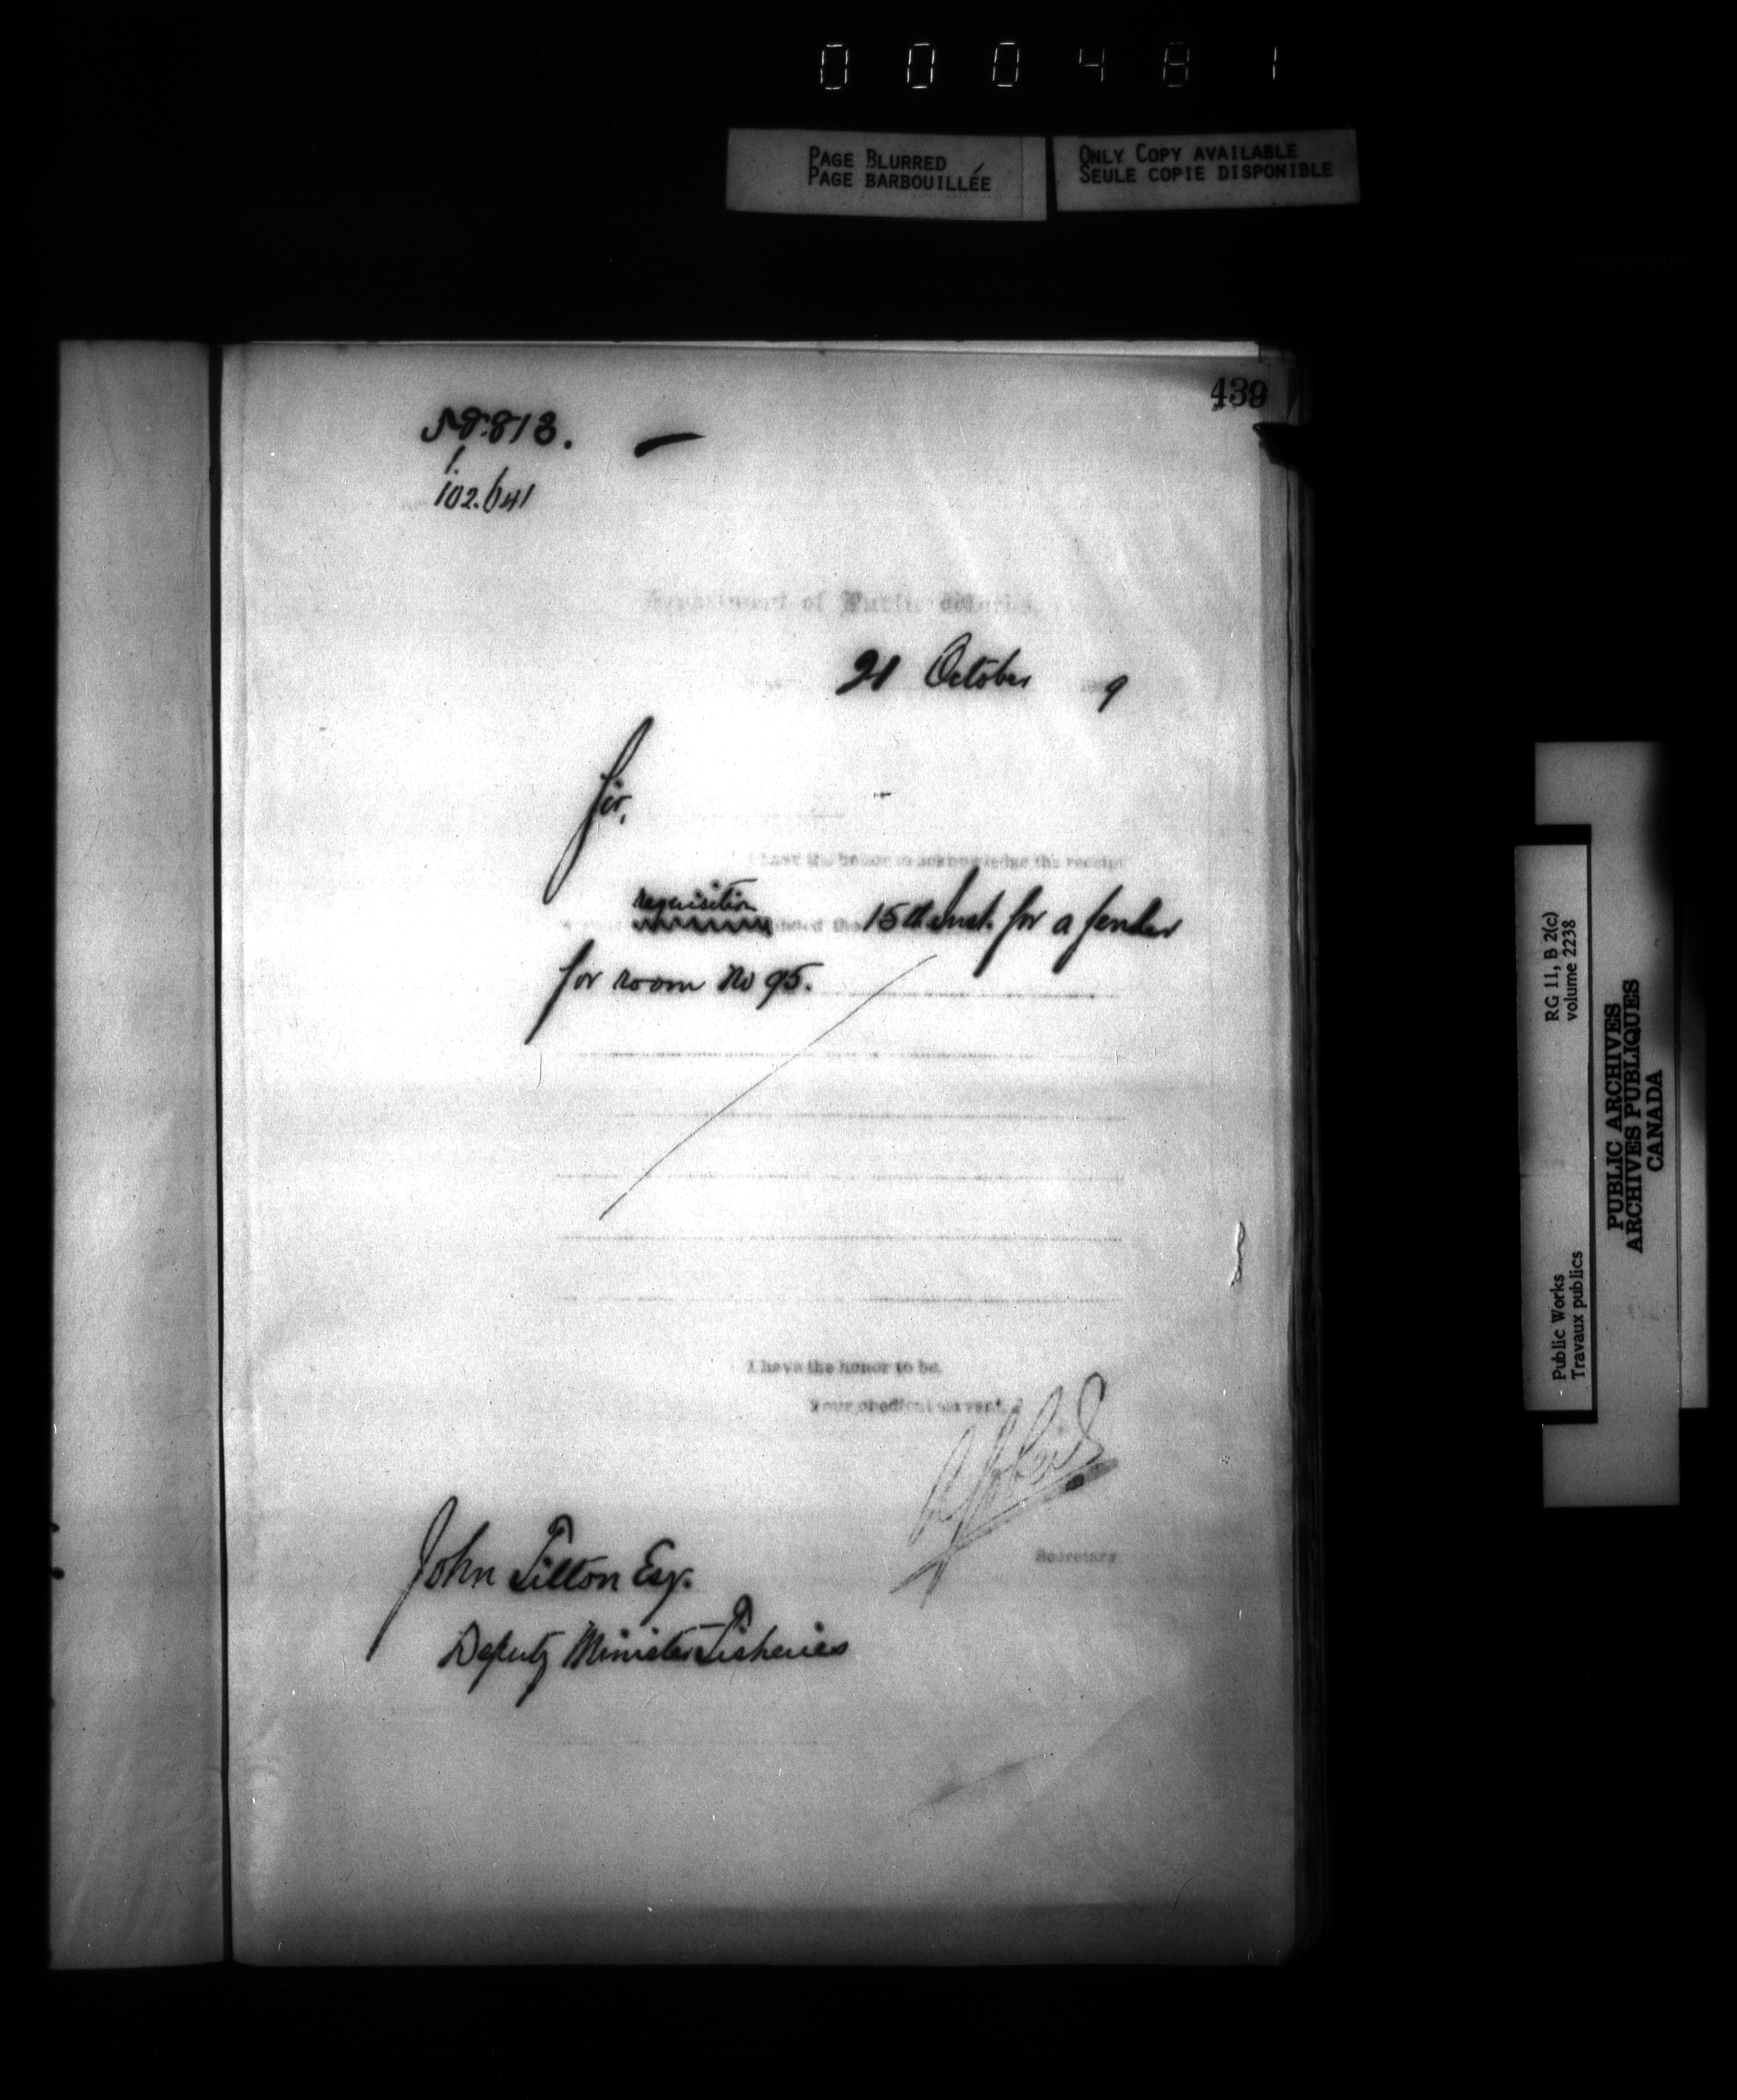 000481
PAGE BLURRED
PAGE BARBOUILLÉE
ONLY COPY AVAILABLE
SEULE COPIE DISPONIBLE
439
58.813.
1.
102.641
Department of Public
21 October 9
Sir,
I have the honor to acknowledge the receipt
requisition
15th Inst. for a fender
for room No 95.
I have the honor to be,
Your obedient servant,
Secretary
John Tilton Esq.
Deputy Minister Fisheries
RG 11, B 2(c)
volume 2238
Public Works
Travaux publics
PUBLIC ARCHIVES
ARCHIVES PUBLIQUES
CANADA